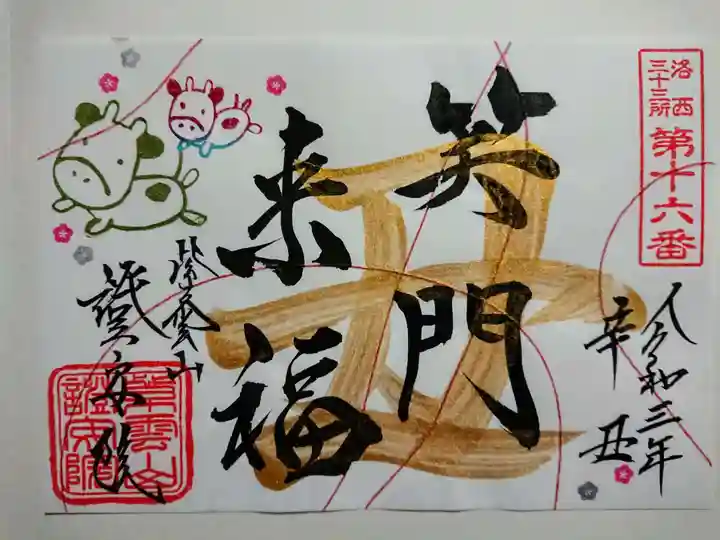 洛西
三十三所
第十六番
令和三年
辛丑
笑門
来福
丑
紫雲山
證安院
紫雲山
證安院